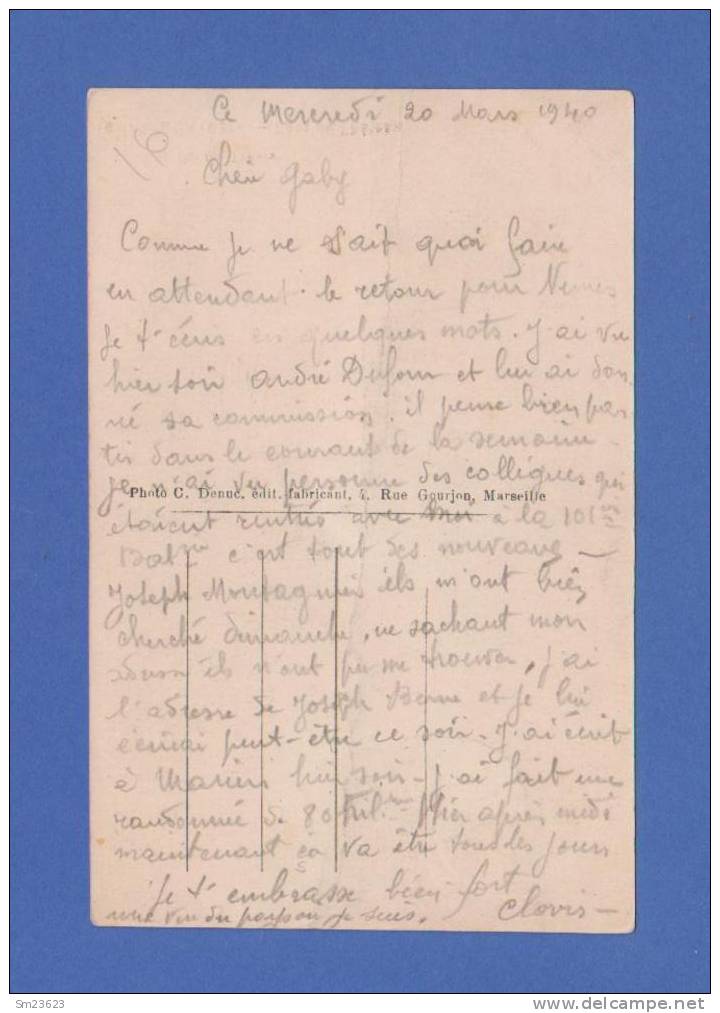 Ce Mercredi 20 Mars 1940
16
Chère Gaby
Comme je ne sait quoi faire
en attendant le retour pour Nimes
je t'écris ces quelques mots. J'ai vu
hier soir andré Dufour et lui ai don
né sa commission. il pense bien par
tir dans le courant de la semaine.
je n'ai vu personne des collègues qui
Photo C. Denuc, édit. fabricant, 4, Rue Gourjon, Marseille
étaient rentrés avec moi à la 101
Bat c'est tout des nouveaux
Joseph Montagnier ils m'ont bien
cherché dimanche, ne sachant mon
adresse ils n'ont pu me trouver, j'ai
l'adresse de Joseph Berne et je lui
écrirai peut-être ce soir. J'ai écrit
à hier soir. J'ai fait une
randonnée de 80 Kil. hier après midi
maintenant ça va être tous les jours
Je t'embrasse bien fort
Clovis
une vue du pays ou je suis.
Sm23623
delcampe.net